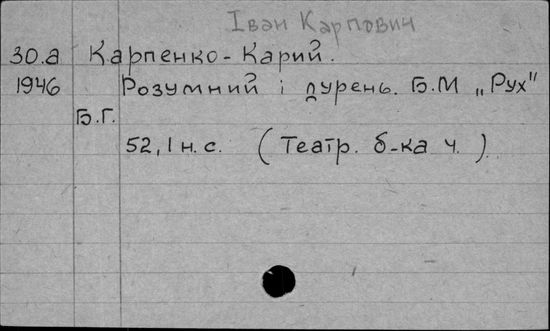 Іван Карпович
30.а Карпенко-Карий.
1946 Розумний і дурень. Б.М „Рух"
Б.Г.
52, 1 н. с. (Театр. б-ка ч. )